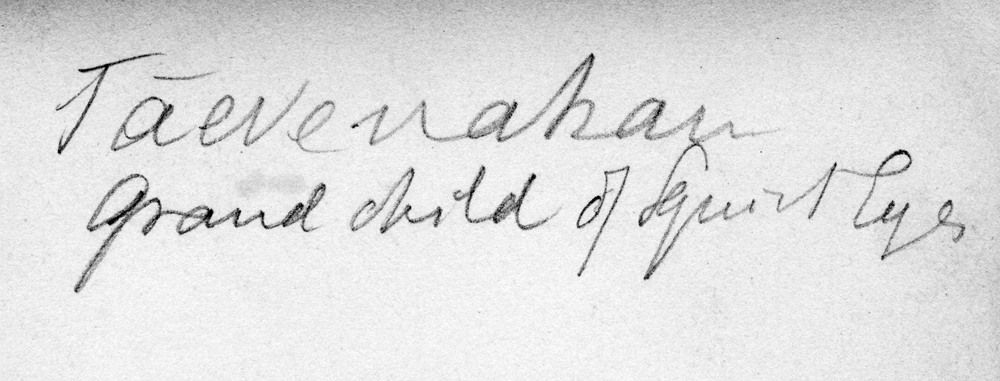 Tāevenahan
Grand child of Squint Eyes